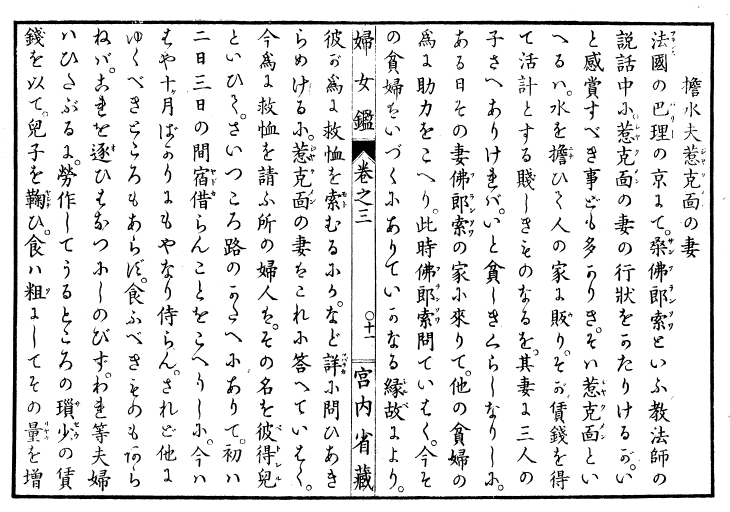 擔水夫惹克面の妻
法國の巴理の京にて。桑佛郎索といふ教法師の
説話中に惹克面の妻の行狀をかたりけるが。い
と感賞すべき事ども多かりき。そは惹克面とい
へるハ。水を擔ひて人の家に販り。そが賃錢を得
て活計とする賤しきものなるを。其妻に三人の
子さへありければ。いと貧しきくらしなりしに
ある日その妻佛郎索の家に來りて。他の貧婦の
爲に助力をこへり。此時佛郎索問ていはく。今そ
の貧婦はいづくにありていかなる縁故により。
婦女鑑 卷之三 〇十一 宮内省藏
彼が爲に救恤を索むるにか。など詳に問ひあき
らめけるに。惹克面の妻これに答へていはく。
今爲に救恤を請ふ所の婦人を。その名を彼得兒
といひて。さいつころ路のかたへにありて。初ハ
二日三日の間宿借らんことをこへりしに。今ハ
はや十ヶ月ばかりにもやなり侍らん。されど他に
ゆくべきところもあらず。食ふべきものもあら
ねバ。これを逐ひはなつにしのびず。われ等夫婦
ハひたぶるに。勞作してうるところの瑣少の賃
錢を以て。兒子を鞠ひ。食ハ粗にしてその量を増